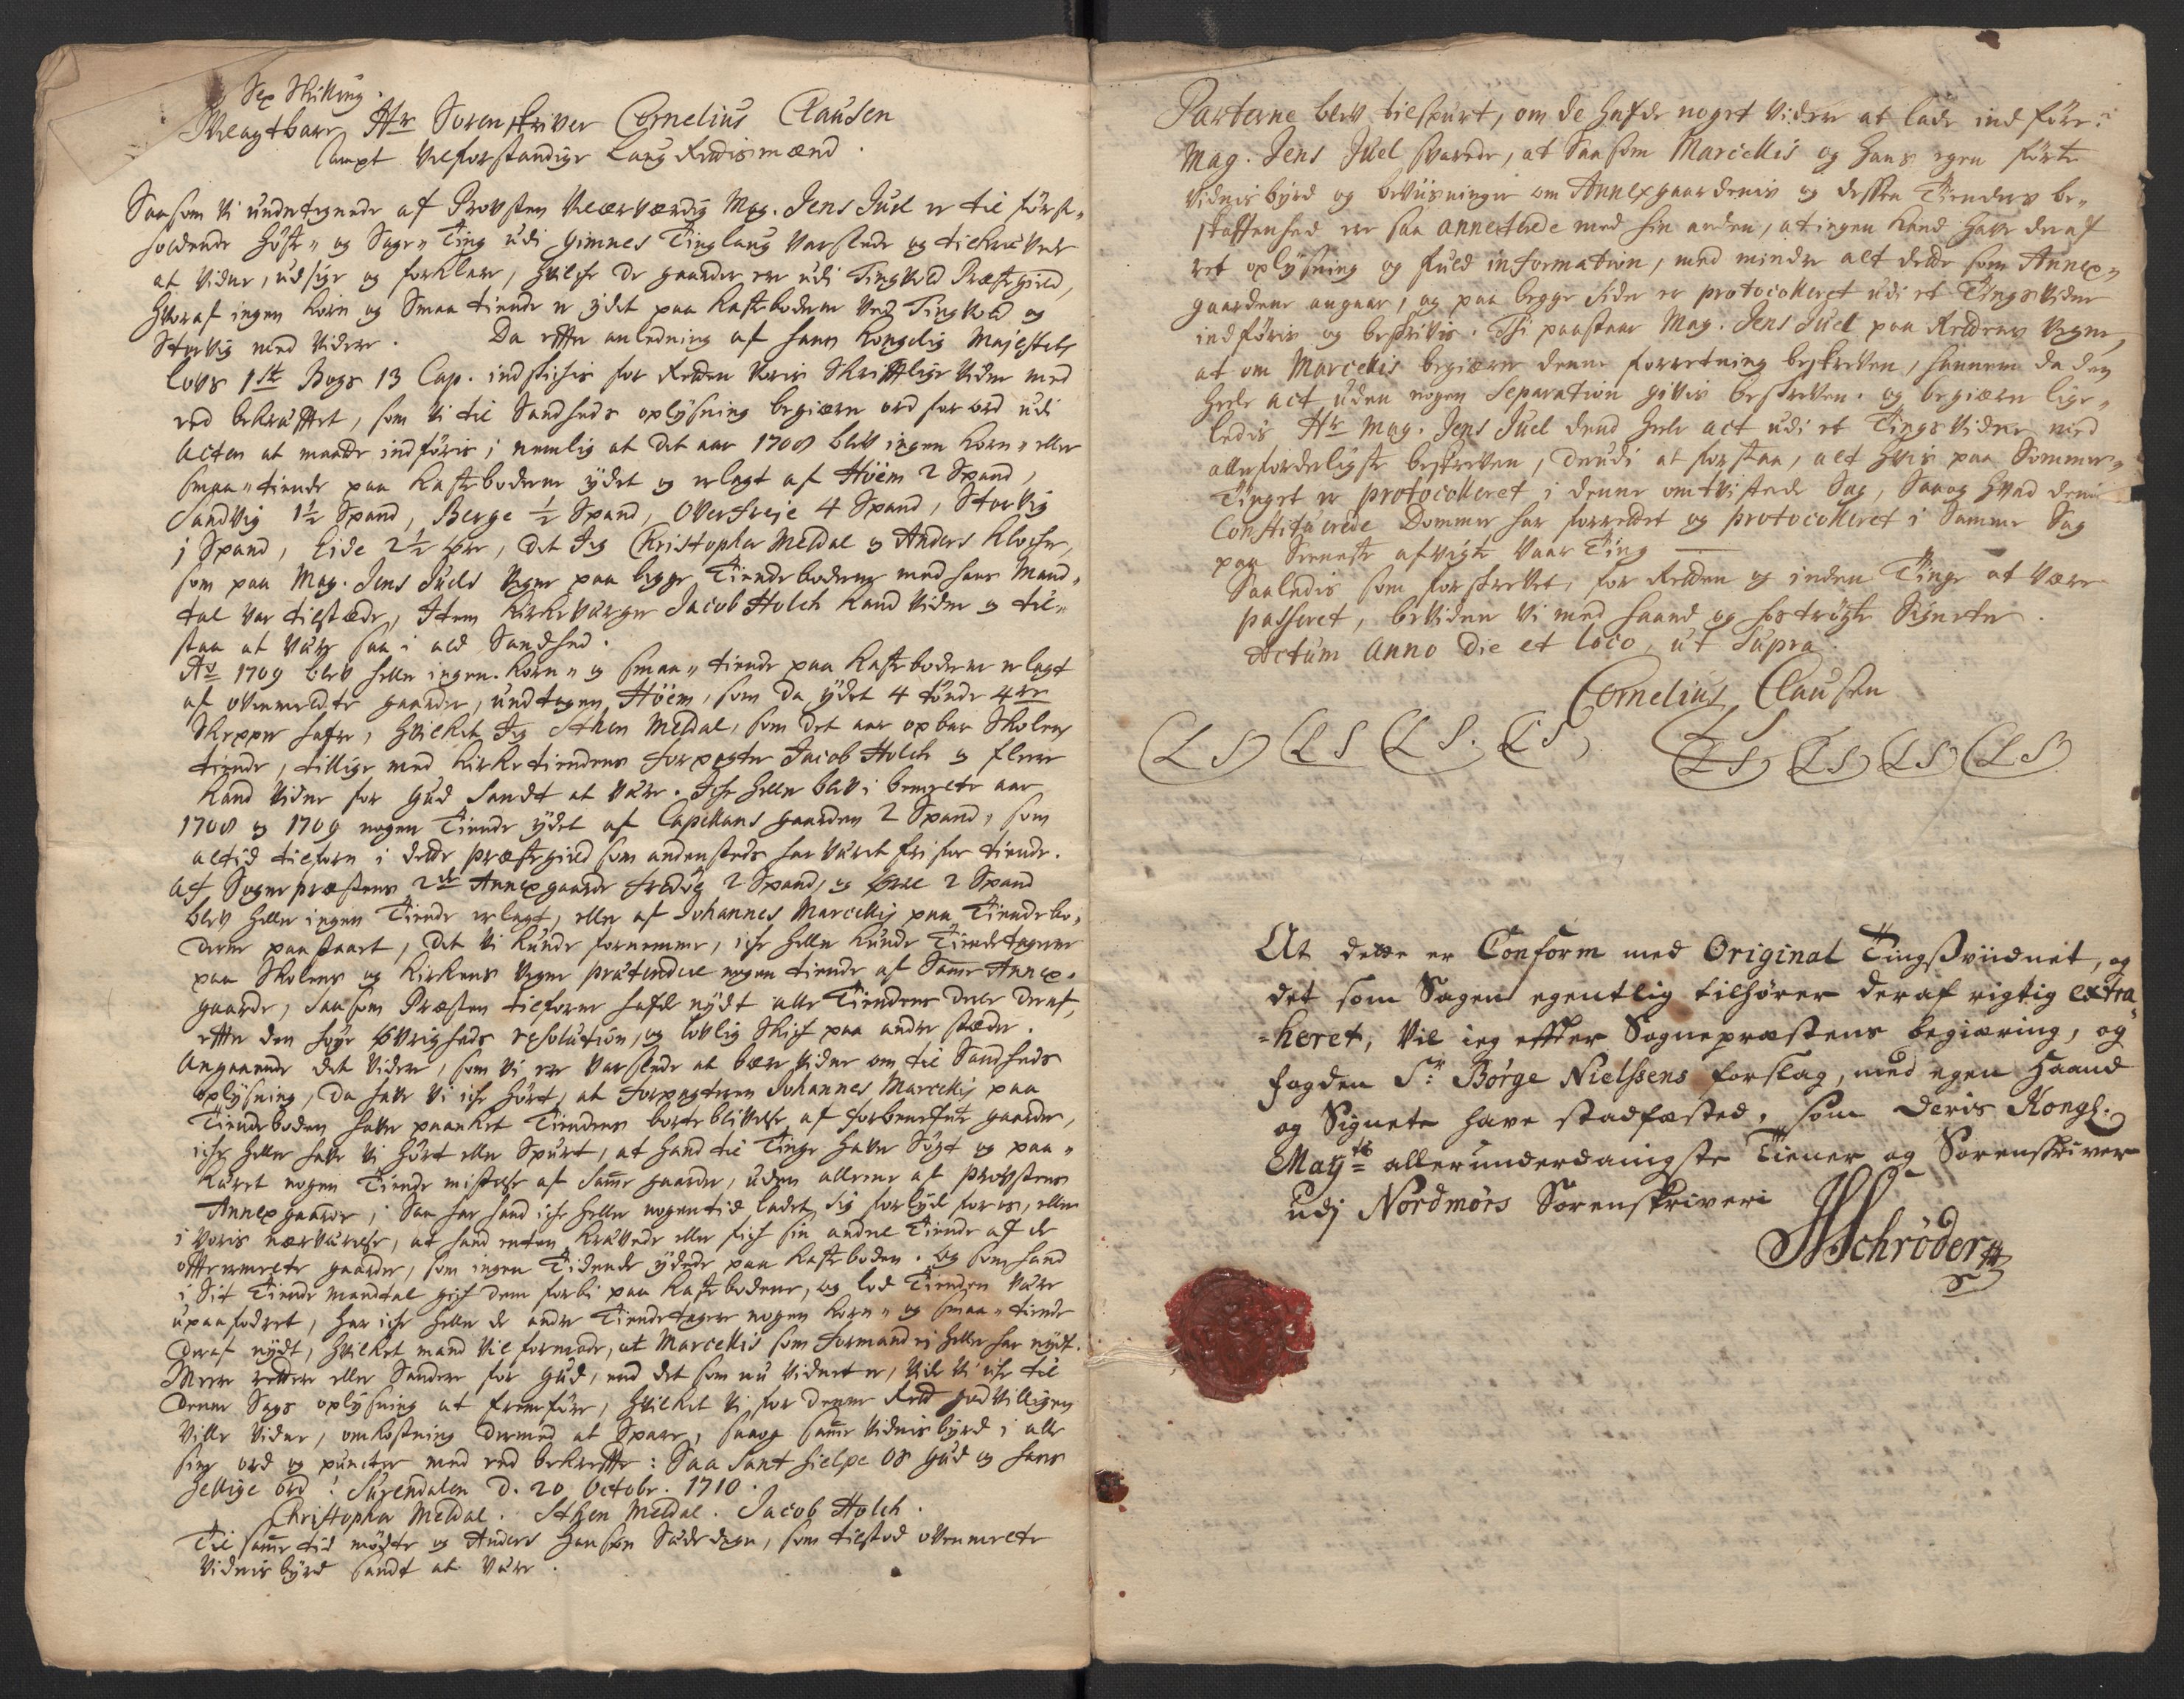 Sex Skilling.
Velagtbare Hr Sorenskriver Cornelius Clausen
sampt Velforstandige Laug Rettismænd.
Saasom Vi undertegnede af Provsten Velærværdig Mag. Jens Juel er til først-
holdende Höste- og Sage-Ting udi Gimnes Tinglaug Varslede og tilkrævede
at Vidne, udsige og forklare, hvilche de gaarder ere udi Tingvold Præstegield,
hvoraf ingen Korn og Smaa tiende er ydet paa Kasteboderne Ved Tingvold og
Storvig med Videre. Da efter anledning af hans Kongelig Majestets
Lovs 1ste Bogs 13 Cap. indstichis for Retten Voris Skrifftlige Vidne med
eed bekræfftet, som Vi til Sandheds oplysning begiærer ord for ord udi
Acten at maatte indföris, nemlig at Det aar 1708 blev ingen Korn- eller
smaa-tiende paa Kasteboderne ydet og erlagt af Höem 2 Spand,
Sandvig 1½ Spand, Berge ½ Spand, Overfreje 4 Spand, Storvig
1 Spand, Eide 2½ öre, Det Jeg Christopher Meldal og Anders Klocher,
som paa Mag. Jens Juels Vegne paa begge Tiendeboderne med hans Mand-
tal var tilstæde, Item Kirkeværger Jacob Holch Kand Vidne og til-
staa at være saa i ald Sandhed.
Ao 1709 blev heller ingen Korn- og smaa-tiende paa Kasteboderne erlagt
af ovenmeldte gaarder, undtagen Höem, som Da ydet 4 tönde 4re
Skepper hafre, hvilket Jeg Sthen Meldal, som det aar opbar Skolens
tiende, tillige med Kirketiendens Forpagter Jacob Holch og flere
Kand Vidne for Gud Sandt at Være. Iche heller blev i bemelte aar
1708 og 1709 nogen Tiende ydet af Capellans gaarden 2 Spand, som
altid tilforn i dette Præstegield som andensteds har Været fri for tiende.
Af Sogne præstens 2de Annex gaarde Fredvög 2 Spand, og Öre 2 Spand
blev heller ingen Tiende erlagt, eller af Johannes Marcellij paa Tiendebo-
derne paastaaet, Det Vi Kunde fornemme, iche heller Kunde Tiendetagerne
paa Skolens og Kirkens Vegne prætendere nogen tiende af Samme Annex-
gaarde, Saasom Præsten tilforne hafde nydt alle Tiendens dele deraf,
efter den höye Övrigheds resolution, og lovlig Skich paa andre stæder.
Angaaende det Videre, som Vi ere Varslede at bære Vidne om til Sandheds
oplysning, Da have Vi iche hört, at Forpagteren Johannes Marcellij paa
Tiendeboden haver paanket Tiendens borteblivelse af forbenefnte gaarder,
iche heller have Vi hört eller Spurt, at hand til Tinge haver Sögt og paa-
Kæret nogen Tiende mistelse af Samme gaarder, uden allene af Provstens
Annex gaarde, Saa har hand iche heller nogentid ladet Sig forlyde for os, eller
i Voris nærværelse, at hand enten Krævede eller fich Sin andeel Tiende af de
offtermelte gaarder, som ingen Tidende ydede paa Kasteboden. Og som hand
i Sit Tiende mandtal gich dem forbi paa Kasteboderne, og lod Tienden Være
upaafodret, har iche heller de andre Tiendetagere nogen Korn- og Smaa-tiende
Deraf nydt, hvilket mand Vil formode, at Marcellis som Formand ej heller har nydt.
Mere rettere eller Sandere for Gud, end det som nu Vidnet er, Vide Vi iche til
Denne Sags oplysning at fremföre, hvilket Vi for denne Rett godvilligen
Ville Vidne, omkostning dermed at Spare, saaog samme Vidnisbyrd i alle
sine ord og puncter med eed bekreffte: Saa sant hielpe os Gud og hans
Hellige ord! Surendalen d. 20 Octobr. 1710.
Christopher Meldal. Sthen Meldal. Jacob Holch.
Til samme tid mödte og Anders Hansön Sædedegn, som tilstod ovenmelte
Vidnisbyrd sandt at Være.
Parterne blev tilspurt, om de hafde noget Videre at lade indföre:
Mag. Jens Juel svarede, at Saasom Marcellis og hans egen förte
Vidnisbyrd og beviisninger om Annexgaardenis og dessen Tienders be-
skaffenhed ere saa annecterede med hin anden, at ingen Kand have deraf
ret oplysning og fuld information, med mindre alt dette som Annex-
gaardene angaar, og paa begge Sider er protocolleret udi et Tings Vidne
indföris og beskrivis. Thi paastaar Mag. Jens Juel paa Rettens Vegne,
at om Marcellis begiærer denne forretning beskreven, hannem da den
heele act uden nogen Separation givis beskreven. og begiærer lige-
ledis Hr Mag. Jens Juel dend heele act udi et Tings Vidne med
allerforderligste beskreven, Derudi at forstaa, alt hvis paa Sommer-
Tinget er protocolleret i denne omtvistede Sag, Saaog hvad den
Constituerede Dommer har forrettet og protocolleret i Samme Sag
paa Seeneste afvigte Vaar Ting
Saaledis som forskrevet, for Retten og inden Tinge at Være
passeret, bevidner Vi med haand og hoströgte Signeter.
Actum Anno Die et loco, ut Supra.
Cornelius Clausen
LS LS LS. LS LS LS LS LS LS
At dette er Conform med Original Tingsviidnet, og
det som Sagen egentlig tilhører deraf rigtig extra-
=heret, Vil ieg effter Sognepræstens begiæring, og
fogden Sr: Børge Nielssens forslag, med egen Haand
og Signete have stadfæsted, som Deris Kongl.
Maytz allerunderdanigste Tiener og Sorenskriver
udj Nordmørs Sorenskriveri
Schrøder